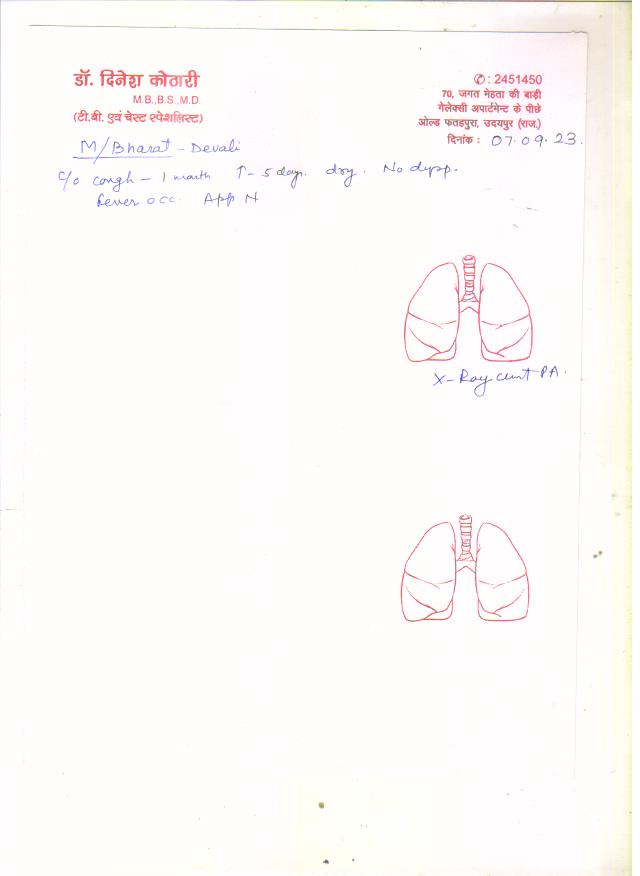 डॉ. दिनेश कोठारी
M.B.,B.S.,M.D.
(टी.बी. एवं चेस्ट स्पेशलिस्ट)
✆ : 2451450
70, जगत मेहता की बाड़ी
गेलेक्सी अपार्टमेन्ट के पीछे
ओल्ड फतहपुरा, उदयपुर (राज.)
दिनांक : 07.09.23.
M/Bharat - Devali
C/o cough - 1 month ↑- 5 days. dry. No dysp.
Fever occ. App N
X-Ray chest PA.